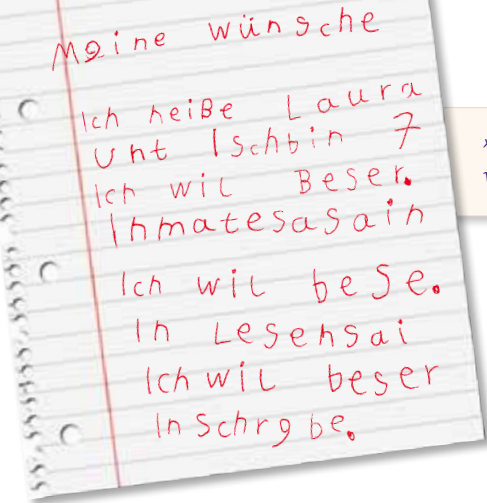 Meine wünsche
Ich heiße Laura
Unt Ischbin 7
Ich wil Beser.
Inmatesasain
Ich wil bese.
In Lesensai
Ich wil beser
In schrgbe.